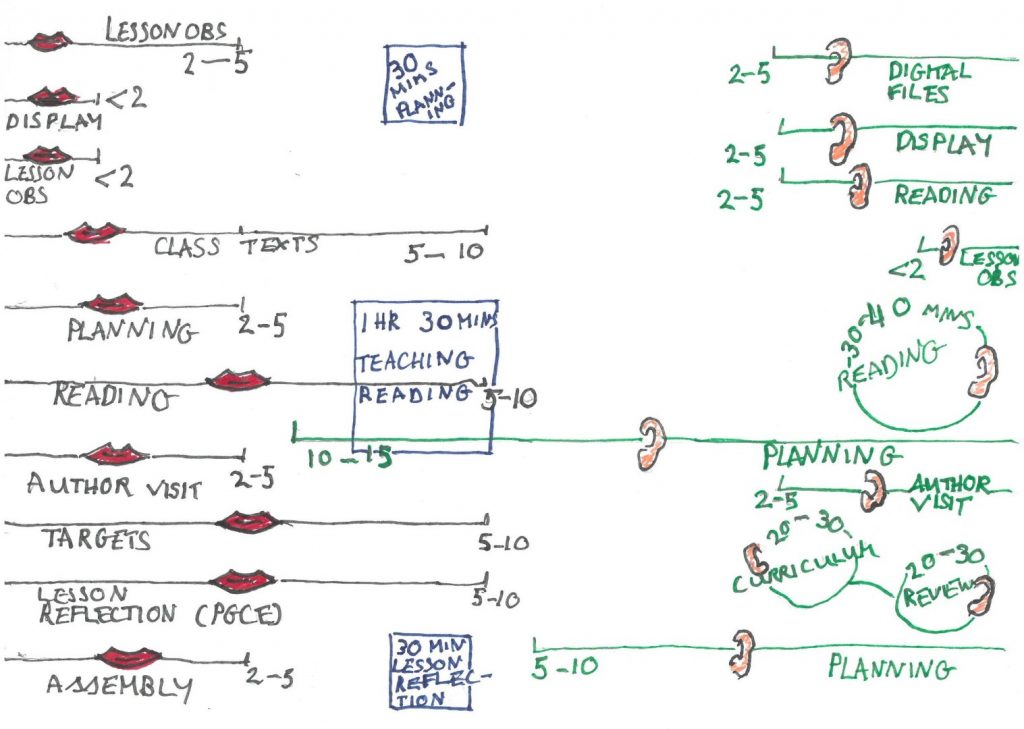 LESSON OBS
2-5
<2
DISPLAY
LESSON
OBS
<2
CLASS TEXTS
5-10
PLANNING
2-5
READING
5-10
AUTHOR VISIT
2-5
TARGETS
5-10
LESSON
REFLECTION (PGCE)
5-10
ASSEMBLY
2-5
30
MINS
PLANN-
ING
1 HR 30 MINS
TEACHING
READING
10-15
30 MIN
LESSON
REFLEC-
TION
2-5
DIGITAL
FILES
2-5
DISPLAY
2-5
READING
<2
LESSON
OBS
-30-40 MINS
READING
PLANNING
2-5
AUTHOR
VISIT
20-30
CURRICULUM
20-30
REVIEW
5-10
PLANNING